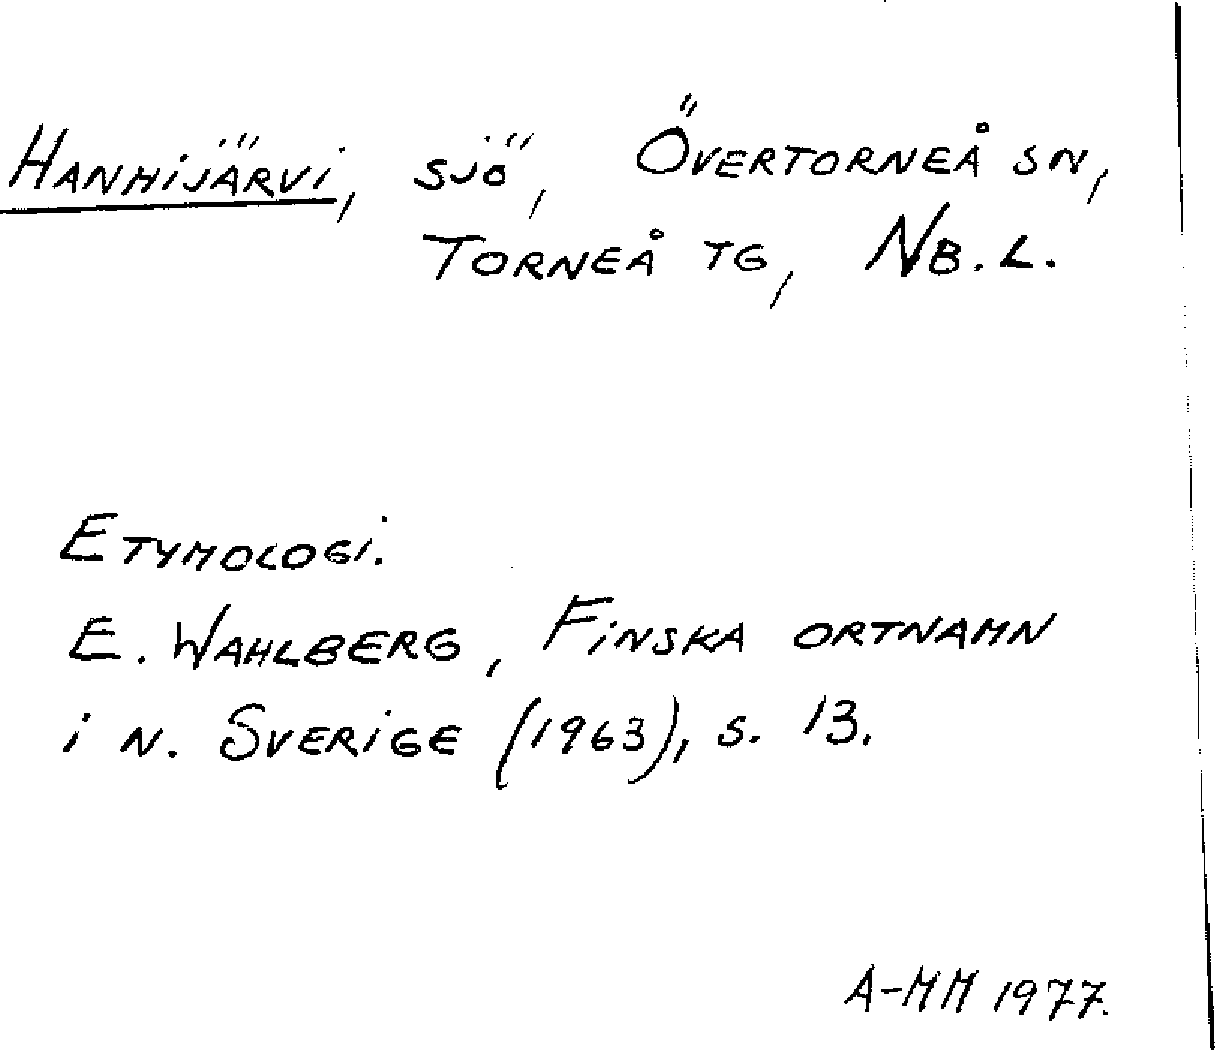 Hanhijärvi, sjö, Övertorneå sn,
Torneå tg, Nb. L.
Etymologi.
E. Wahlberg, Finska ortnamn
i n. Sverige (1963), s. 13.
A-MM 1977.